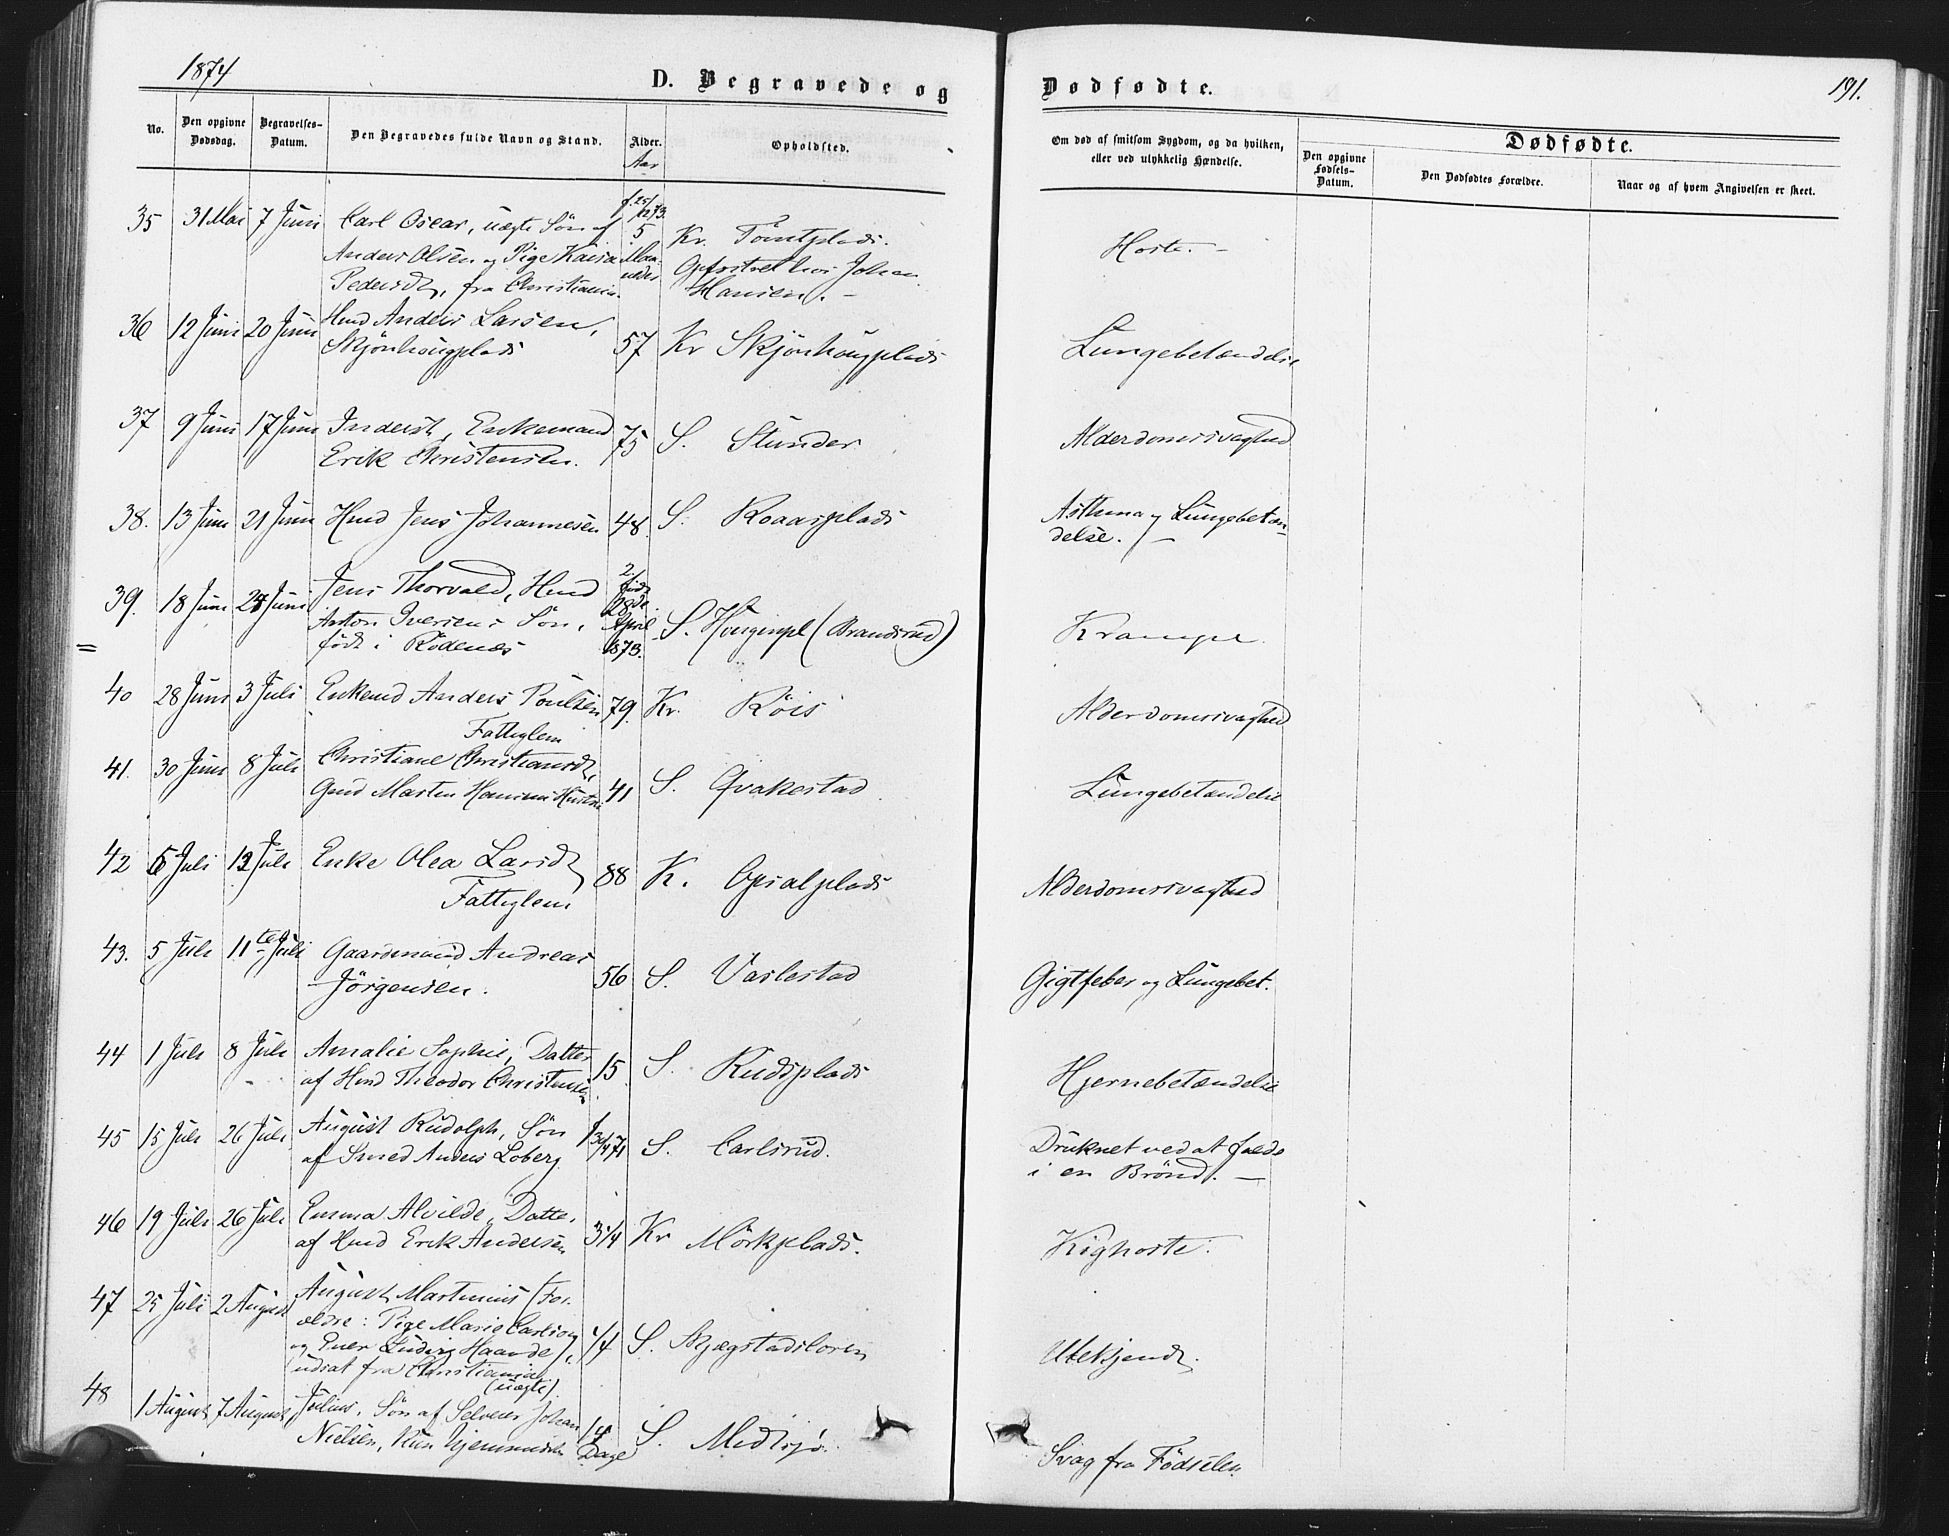 1874
D. Begravede og
Dødfødte.
191.
No.
Den opgivne Dødsdag.
Begravelses-Datum.
Den Begravedes fulde Navn og Stand.
Alder.
Aar
Opholdsted.
Om død af smitsom Sygdom, og da hvilken,
eller ved ulykkelig Hændelse.
Dødfødte.
Den opgivne Fødsels-Datum.
Den Dødfødtes Forældre.
Naar og af hvem Angivelsen er skeet.
35 31 Mai 7 Juni Carl Oscar, uægte Søn af
f. 25/12 73.
5 Maaneder
Kr. Tomtplads.
Hoste. –
Anders Olsen og Pige
Opfostret hos Johan
Pedersdt, fra Christiania.
Hansen. –
36 12 Juni 20 Juni Hmd Anders Larsen,
Skjönhougplads 57 Kr Skjönhougplads Lungebetændelse
37 9 Juni 17 Juni Inderst, Enkemand 75 S. Stunder Alderdomssvaghed
Erik Christensen.
38. 13 Juni 21 Juni Hmd Jens Johannesen 48. S. Roaasplads Asthma og Lungebetæn-
delse. –
39. 18 Juni 24 Juni Jens Thorvald, Hmd
2. født 28de April 1873.
Anton Iversens Søn, S. Hougenpl (Brandsrud) Krampe.
født i Rödenæs
40 28 Juni 3 Juli Enkemd Anders Poulsen 79. Kr. Röis Alderdomssvaghed
Fattiglem
41. 30 Juni 8 Juli Christiane Christiansdt,
Gmd Marten Hansens Hustru 41 S. Qvakestad Lungebetændelse
42 6 Juli 12 Juli Enke Olea Larsdt 88 K. Opsalplads Alderdomssvaghed
Fattiglem
43. 5 Juli 11te Juli Gaardmand Andreas
Jörgensen. 56 S. Vaslestad Gigtfeber og Lungebet.
44 1 Juli 8 Juli Amalie Sophie, Datter
af Hmd Theodor Christensen 15 S. Rudsplads Hjernebetændelse
45 15 Juli 26 Juli August Rudolph, Søn
af Smed Anders Loberg S. Carlsrud. Druknet ved at falde
i en Brönd. –
46 19 Juli 26 Juli Emma Alvilde, Datter
af Hmd Erik Andersen 3 1/4 Kr Mörkplads. Kighoste.
47 25 Juli 2 August August Martinius (For-
ældre: Pige Marie Carlson
og Ludvig Haande), 1/4 S. Skjægstadsloren Ubekjendt.
udsat fra Christiania
(uægte)
48 1 August 7 August Julius, Søn af Selveier Johan
Nielsen, Kun hjemmedöbt 14 Dage S. Midtsjö. Svag fra Fødselen